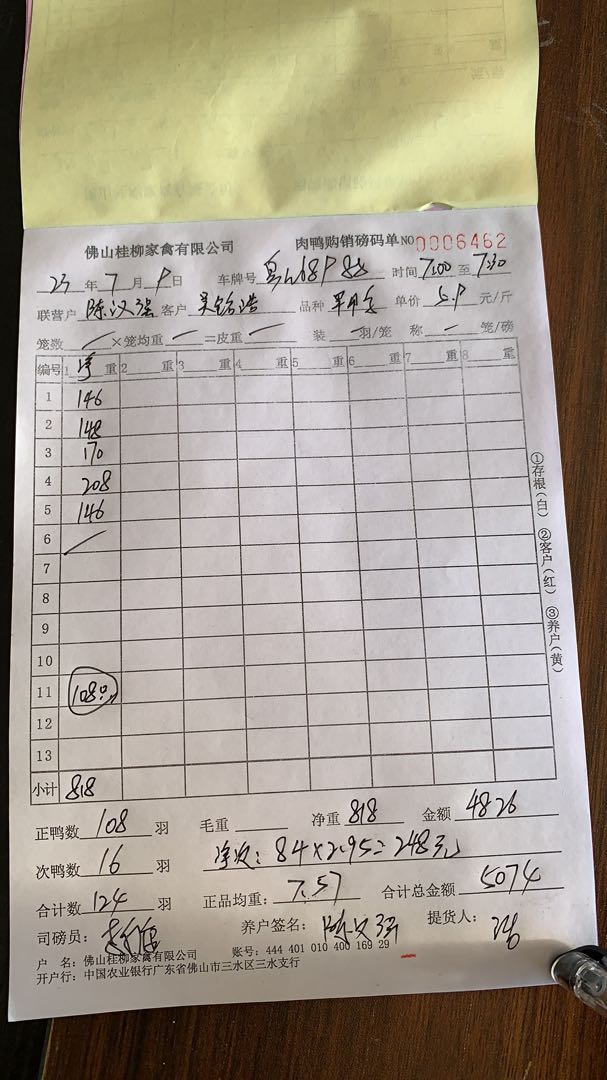 佛山桂柳家禽有限公司 肉鸭购销磅码单 NO 0006462
23 年 7 月 9 日 车牌号 时间 7:00 至 7:30
联营户 陈汉强 客户 品种 单价 5.9 元/斤
笼数 — ×笼均重 — =皮重 — 装 — 羽/笼 称 — 笼/磅
编号 1 净 重 2 重 3 重 4 重 5 重 6 重 7 重 8 重
1 146
2 148
3 170
4 208
5 146
6
7
8
9
10
11 108
12
13
小计 818
①存根(白) ②客户(红) ③养户(黄)
正鸭数 108 羽 毛重 净重 818 金额 4826
次鸭数 16 羽 净次: 84×2.95=248元
合计数 124 羽 正品均重: 7.57 合计总金额 5074
司磅员: 养户签名: 陈汉强 提货人:
户 名: 佛山桂柳家禽有限公司 账号: 444 401 010 400 169 29
开户行: 中国农业银行广东省佛山市三水区三水支行